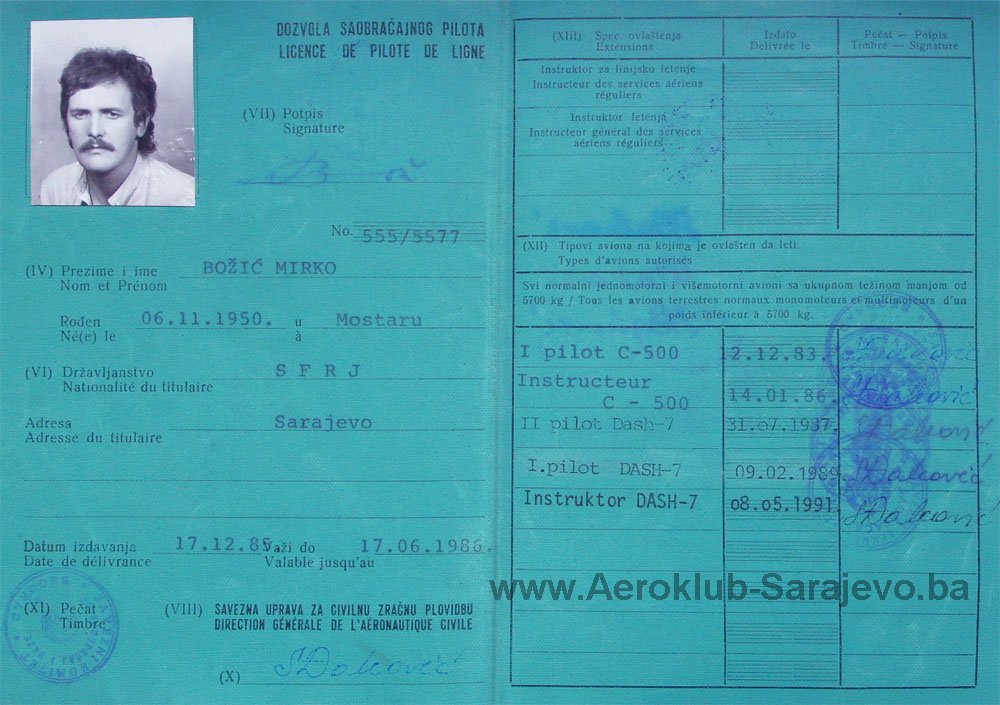 DOZVOLA SAOBRAĆAJNOG PILOTA
LICENCE DE PILOTE DE LIGNE
(VII) Potpis
Signature
No. 555/5577
(IV) Prezime i ime BOŽIĆ MIRKO
Nom et Prénom
Rođen 06.11.1950. u Mostaru
Né(e) le à
(VI) Državljanstvo S F R J
Nationalité du titulaire
Adresa Sarajevo
Adresse du titulaire
Datum izdavanja 17.12.85 Važi do 17.06.1986.
Date de délivrance Valable jusqu'au
(XI) Pečat (VIII) SAVEZNA UPRAVA ZA CIVILNU ZRAČNU PLOVIDBU
Timbre DIRECTION GÉNÉRALE DE L'AÉRONAUTIQUE CIVILE
(X)
(XIII) Spec. ovlaštenja Izdato Pečat — Potpis
Extensions Délivrée le Timbre — Signature
Instruktor za linijsko letenje
Instructeur des services aériens
réguliers
Instruktor letenja
Instructeur général des services
aériens réguliers
(XII) Tipovi aviona na kojima je ovlašten da leti
Types d'avions autorisés
Svi normalni jednomotorni i višemotorni avioni sa ukupnom težinom manjom od
5700 kg / Tous les avions terrestres normaux monomoteurs et multimoteurs d'un
poids inférieur à 5700 kg.
I pilot C-500 12.12.83.
Instructeur
C - 500 14.01.86.
II pilot Dash-7 31.07.1987.
I.pilot DASH-7 09.02.1989.
Instruktor DASH-7 08.05.1991.
www.Aeroklub-Sarajevo.ba